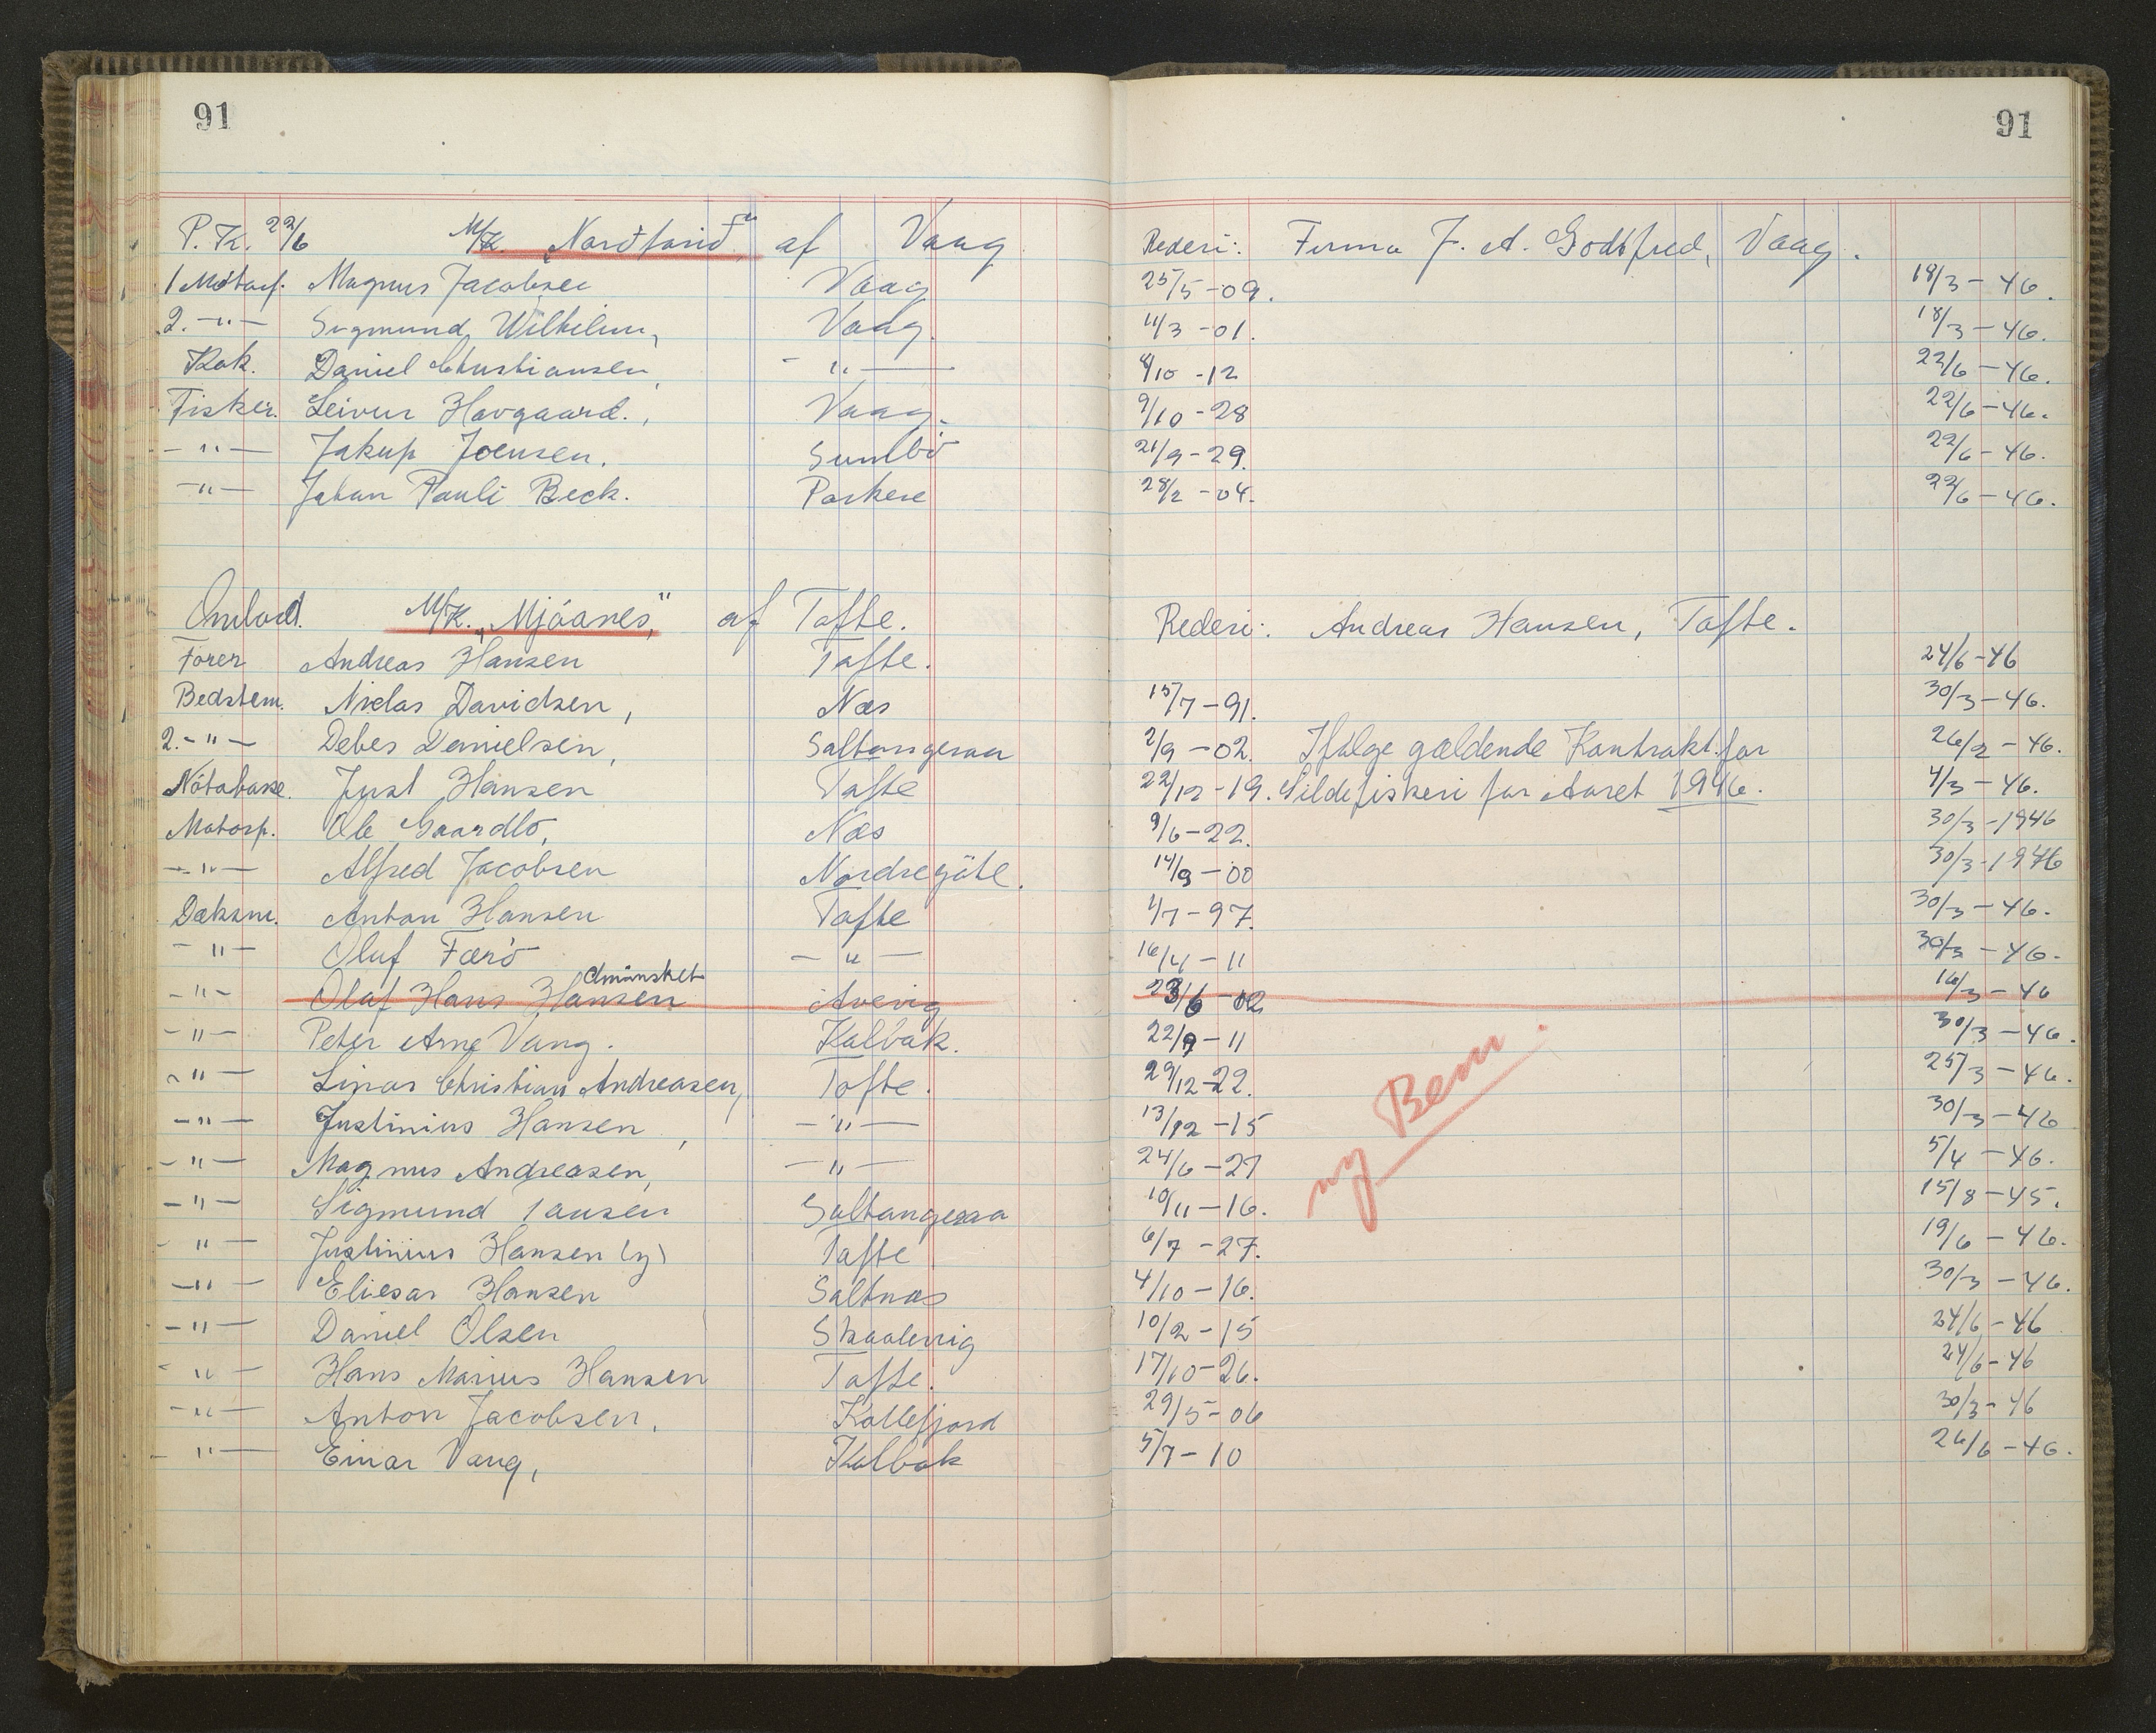 91 91
P. K. 22/6 M/K. „Nordfarid“ af Vaag Rederi: Firma J. A. Godtfred, Vaag.
1 Motorf. Magnus Jacobsen Vaag 25/5-09. 18/3-46.
2. -"- Sigmund Wilhelm, Vaag. 11/3-01. 18/3-46.
Kok. Daniel Christiansen, -"- 8/10-12 22/6-46.
Fisker. Leivur Hovgaard., Vaag. 9/10-28 22/6-46.
-"- Jakup Joensen. Sumbö 21/9-29. 22/6-46.
-"- Johan Pauli Beck. Porkere 28/2-04. 22/6-46.
Ombod. M/K. „Mjóanes“ af Tofte. Rederi: Andreas Hansen, Tofte.
Fører Andreas Hansen Tofte. 24/6-46
Bedstem. Niclas Davidsen, Næs 15/7-91. 30/3-46.
2.-"- Debes Danielsen, Saltangeraa 2/9-02. Ifølge gældende Kontrakt for 26/2-46.
Nótabase. Just Hansen Tofte 22/12-19. Sildefiskeri for Aaret 1946. 4/3-46.
Motorp. Ole Gaardlö, Næs 9/6-22. 30/3-1946
-"- Alfred Jacobsen Nordregöte. 14/9-00 30/3-1946
Dæksm. Anton Hansen Tofte 1/7-97. 30/3-46.
-"- Oluf Færö -"- 16/4-11 30/3-46.
-"- Olaf Hans Hansen afmönstret Avevig 23/6-02 16/3-46
-"- Peter Arne Vang. Kalbak. 22/9-11 30/3-46.
-"- Linar Christian Andreasen, Tofte. 29/12-22. 25/3-46.
-"- Justinius Hansen, -"- 13/12-15 30/3-46
-"- Magnus Andreasen, -"- 24/6-27 5/4-46.
-"- Sigmund Jansen Saltangeraa 10/11-16. 15/8-45.
-"- Justinius Hansen (y) Tofte 6/7-27. 19/6-46.
-"- Eliesar Hansen Saltnæs 4/10-16. 30/3-46.
-"- Daniel Olsen Skaalevig 10/2-15 24/6-46
-"- Hans Marius Hansen Tofte. 17/10-26. 24/6-46
-"- Anton Jacobsen, Kollefjord 29/5-06 30/3-46
-"- Einar Vang, Kalbak 5/7-10 26/6-46.
ny Bem.